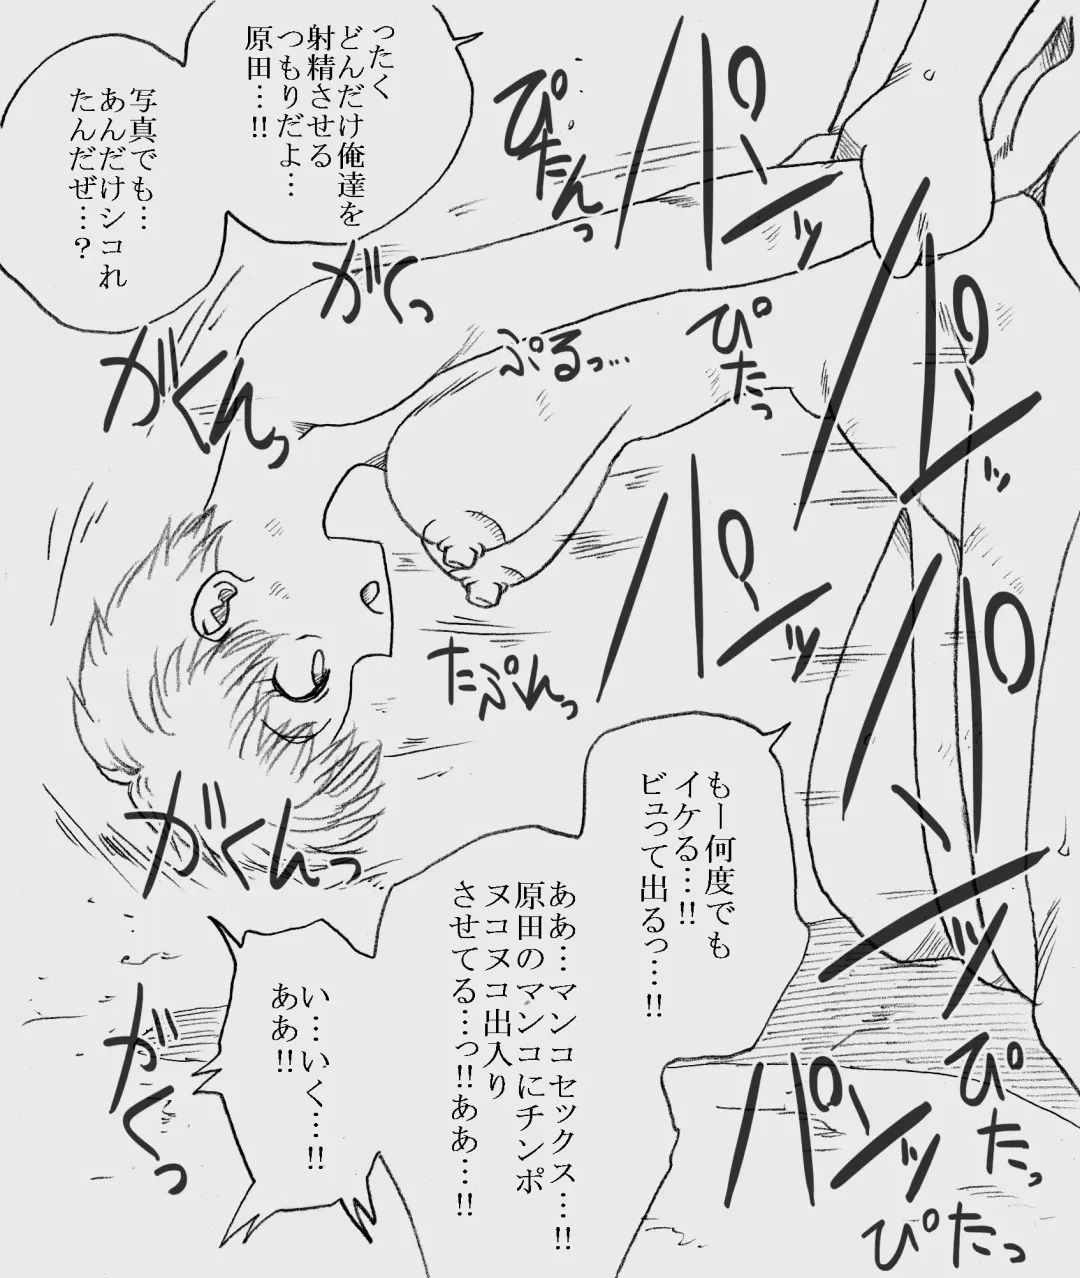 ったく
どんだけ俺達を
射精させる
つもりだよ…
原田…!!
写真でも…
あんだけシコれ
たんだぜ…?
ぴたんっ
パンッ
がくっ
がくんっ
ぷるっ…
ぴたっ
パンッ
パンッ
たぷんっ
パンッ
がくんっ
もー何度でも
イケる…!!
ビュって出るっ…!!
ああ…マンコセックス…!!
原田のマンコにチンポ
ヌコヌコ出入り
させてる…っ!!ああ…!!
い…いく…!!
ああ!!
がくっ
パンッ
ぴたっ
ぴたっ